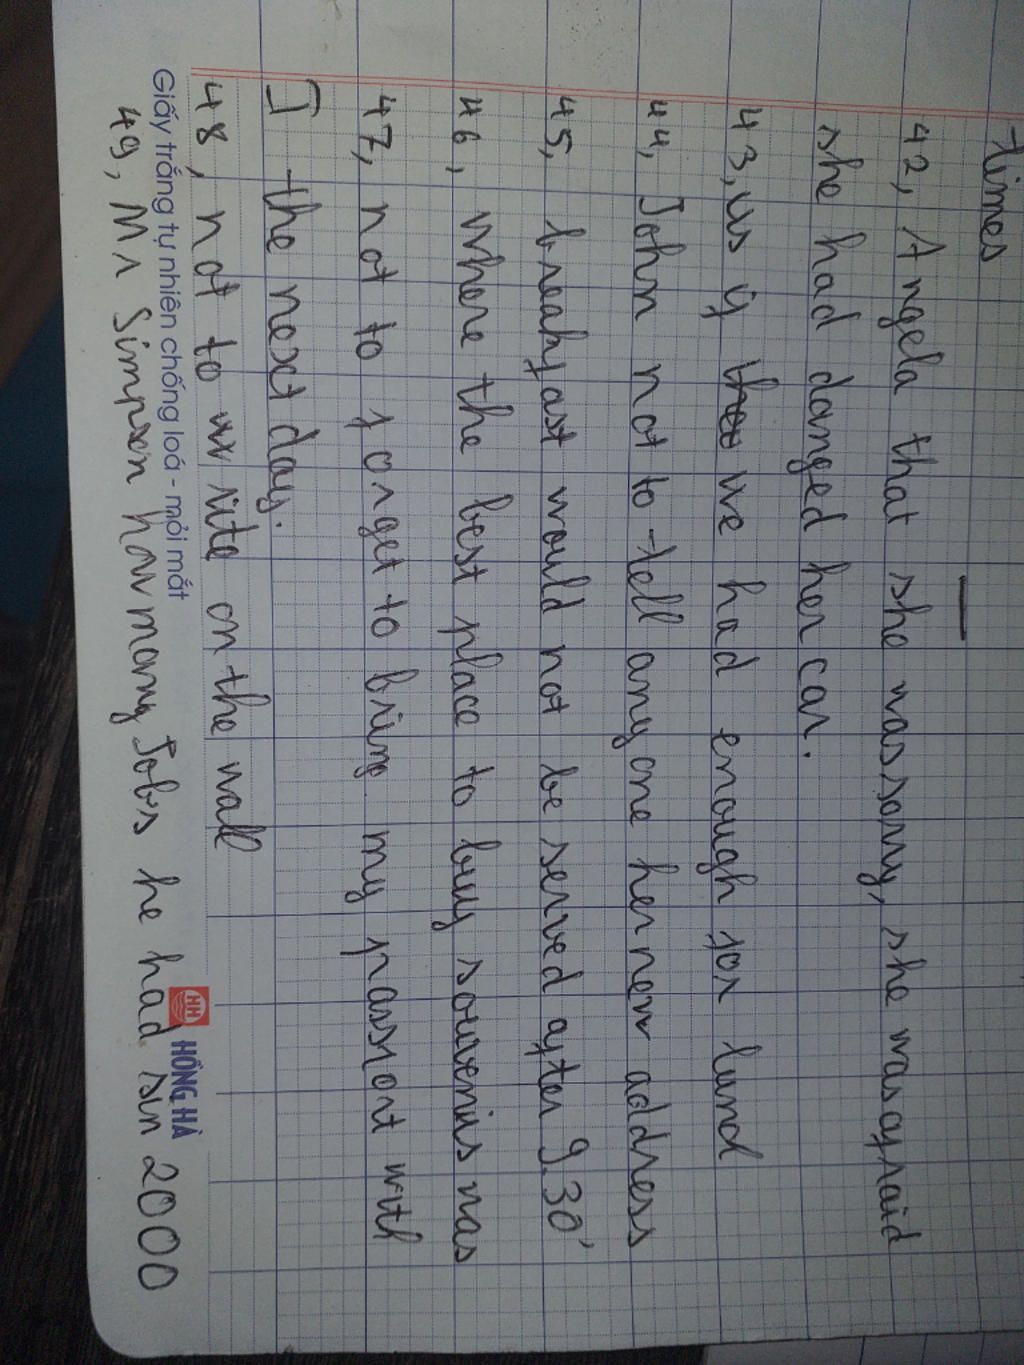 times
42, Angela that she was sorry, she was afraid
she had danged her car.
43, us if we had enough for lund
44, John not to tell anyone her new address
45, breakfast would not be served after 9.30'
46, where the best place to buy souvenirs was
47, not to forget to bring my passport with
I the next day.
48, not to write on the wall
Giấy trắng tự nhiên chống loá - mỏi mắt
HH HỒNG HÀ
49, Mr Simpson how many Jobs he had sin 2000